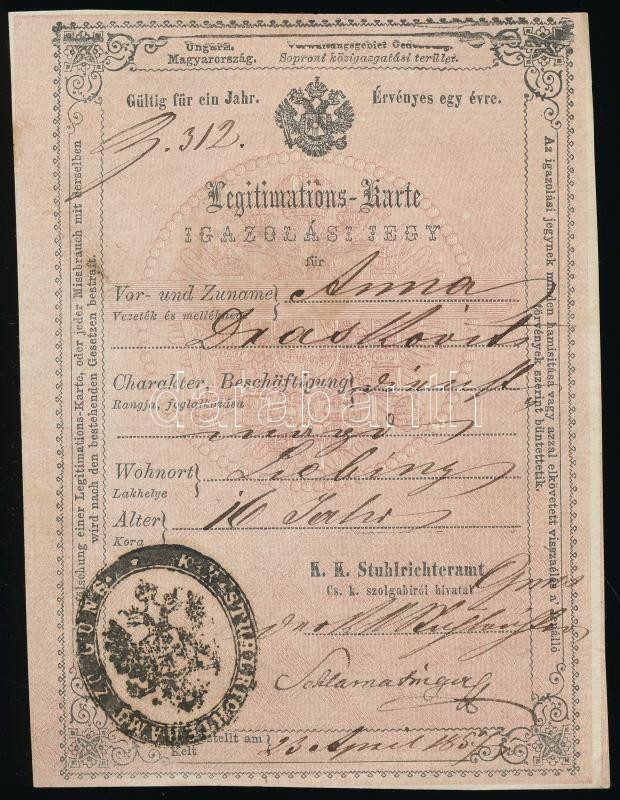 Ungarn.
Magyarország.
Verwaltungsgebiet Oedenburg.
Soproni közigazgatási terület.
Gültig für ein Jahr.
Érvényes egy évre.
Z. 312.
Legitimations-Karte
IGAZOLÁSI JEGY
für
Vor- und Zuname} Anna
Vezeték és mellékneve
Draskovits
Charakter, Beschäftigung}
Rangja, foglalkozása
Wohnort}
Lakhelye
Alter} 16 Jahr
Kora
K. K. Stuhlrichteramt
Cs. k. szolgabirói hivatal
Güns
K. K. STUHLRICHTERAMT ZU GÜNS.
23 April 185
Kelt
oder jeder Missbrauch mit derselben
wird nach den bestehenden Gesetzen bestraft.
Az igazolási jegynek minden hamisitása vagy azzal elkövetett visszaélés a fenálló
törvények szerint büntettetik.
darabanth